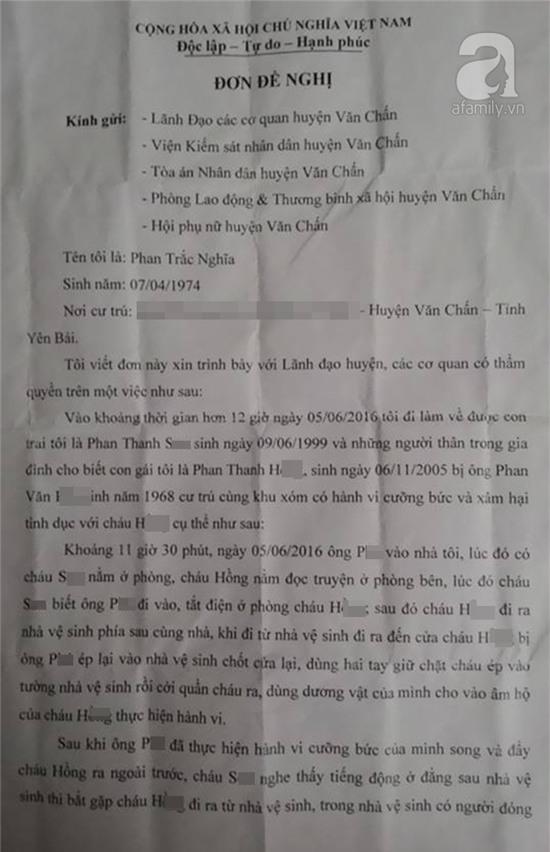 CỘNG HÒA XÃ HỘI CHỦ NGHĨA VIỆT NAM
Độc lập – Tự do – Hạnh phúc
a
afamily.vn
ĐƠN ĐỀ NGHỊ
Kính gửi: - Lãnh Đạo các cơ quan huyện Văn Chấn
- Viện Kiểm sát nhân dân huyện Văn Chấn
- Tòa án Nhân dân huyện Văn Chấn
- Phòng Lao động & Thương binh xã hội huyện Văn Chấn
- Hội phụ nữ huyện Văn Chấn
Tên tôi là: Phan Trắc Nghĩa
Sinh năm: 07/04/1974
Nơi cư trú: - Huyện Văn Chấn – Tỉnh
Yên Bái.
Tôi viết đơn này xin trình bày với Lãnh đạo huyện, các cơ quan có thẩm
quyền trên một việc như sau:
Vào khoảng thời gian hơn 12 giờ ngày 05/06/2016 tôi đi làm về được con
trai tôi là Phan Thanh sinh ngày 09/06/1999 và những người thân trong gia
đình cho biết con gái tôi là Phan Thanh , sinh ngày 06/11/2005 bị ông Phan
Văn năm 1968 cư trú cùng khu xóm có hành vi cưỡng bức và xâm hại
tình dục với cháu cụ thể như sau:
Khoảng 11 giờ 30 phút, ngày 05/06/2016 ông vào nhà tôi, lúc đó có
cháu nằm ở phòng, cháu Hồng nằm đọc truyện ở phòng bên, lúc đó cháu
biết ông đi vào, tắt điện ở phòng cháu ; sau đó cháu đi ra
nhà vệ sinh phía sau cùng nhà, khi đi từ nhà vệ sinh đi ra đến cửa cháu bị
ông ép lại vào nhà vệ sinh chốt cửa lại, dùng hai tay giữ chặt cháu ép vào
tường nhà vệ sinh rồi cởi quần cháu ra, dùng dương vật của mình cho vào âm hộ
của cháu thực hiện hành vi.
Sau khi ông đã thực hiện hành vi cưỡng bức của mình song và đẩy
cháu Hồng ra ngoài trước, cháu nghe thấy tiếng động ở đằng sau nhà vệ
sinh thì bắt gặp cháu đi ra từ nhà vệ sinh, trong nhà vệ sinh có người đóng